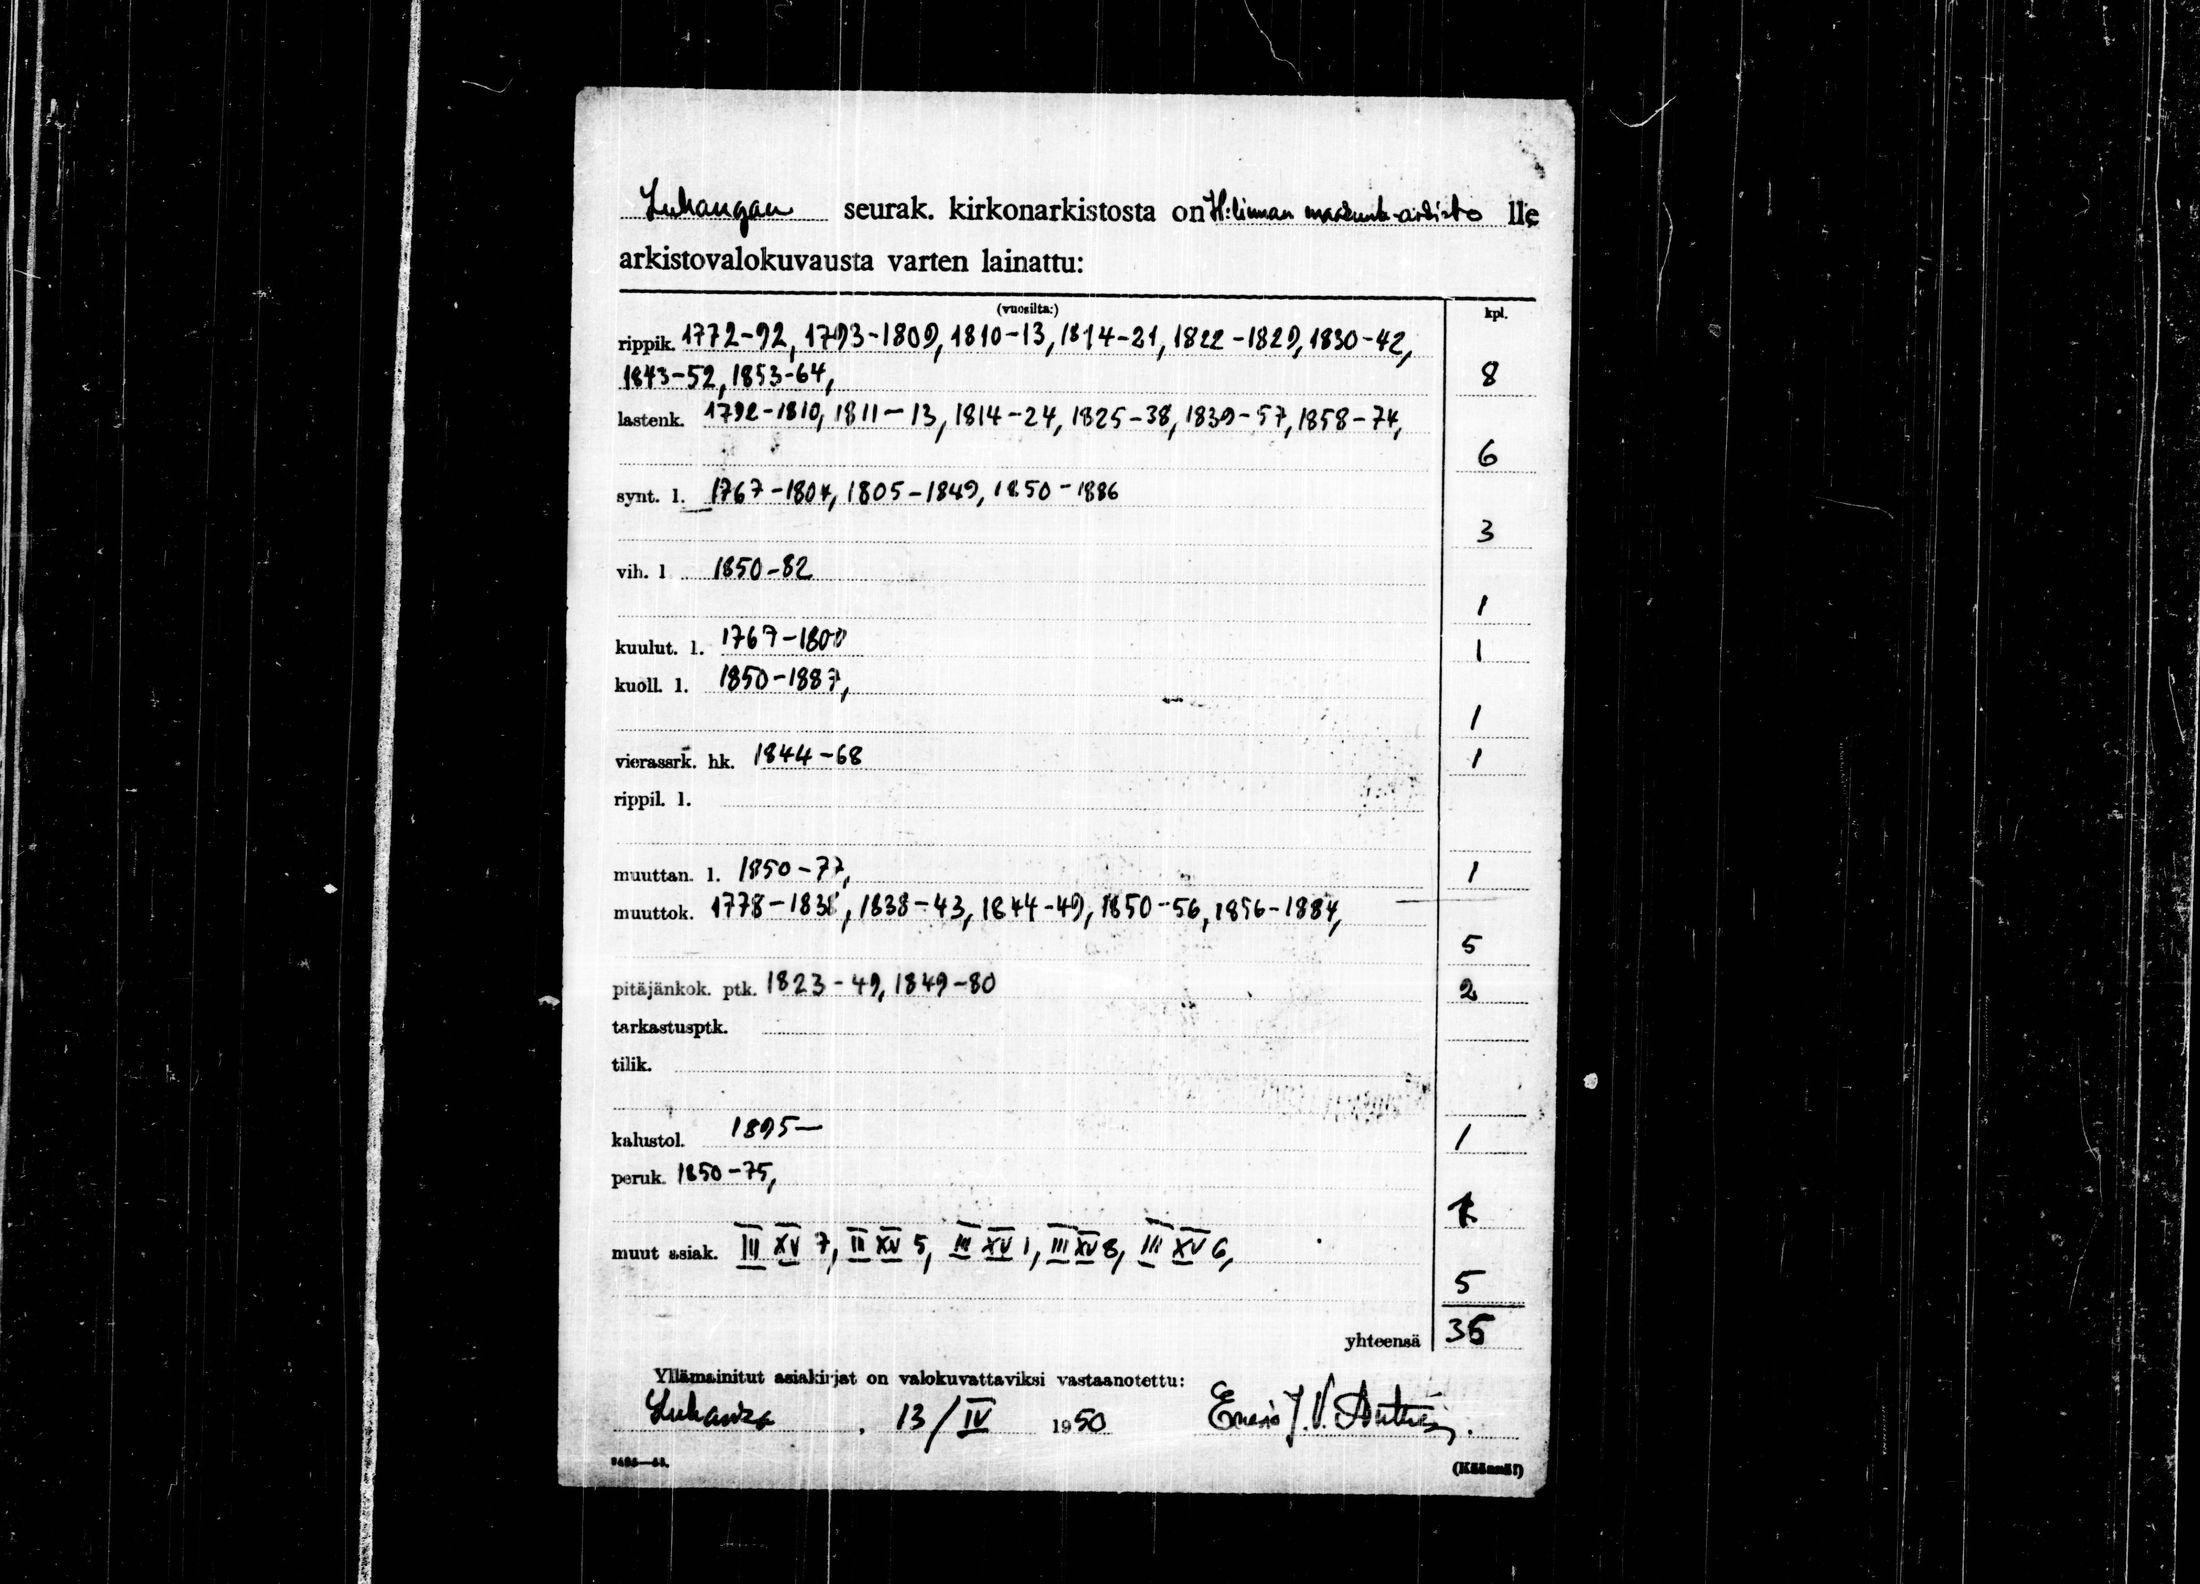 Luhangan seurak. kirkonarkistosta on H:linnan maakunta-arkisto lle
arkistovalokuvausta varten lainattu:
(vuosilta:) kpl.
rippik. 1772-92, 1793-1809, 1810-13, 1814-21, 1822-1829, 1830-42,
1843-52, 1853-64, 8
lastenk. 1792-1810, 1811-13, 1814-24, 1825-38, 1839-57, 1858-74,
6
synt. l. 1767-1804, 1805-1849, 1850-1886
3
vih. l 1850-82
1
kuulut. l. 1767-1800 1
kuoll. l. 1850-1887,
1
vierassrk. hk. 1844-68 1
rippil. l.
muuttan. l. 1850-77, 1
muuttok. 1778-1838, 1838-43, 1844-49, 1850-56, 1856-1884,
5
pitäjänkok. ptk. 1823-49, 1849-80 2
tarkastusptk.
tilik.
kalustol. 1895- 1
peruk. 1850-75,
1
muut asiak. III XV 7, II XV 5, III XV 1, III XV 8, III XV 6,
5
yhteensä 36
Yllämainitut asiakirjat on valokuvattaviksi vastaanotettu:
Luhanka, 13/IV 1950 J.V.
(Käännä!)